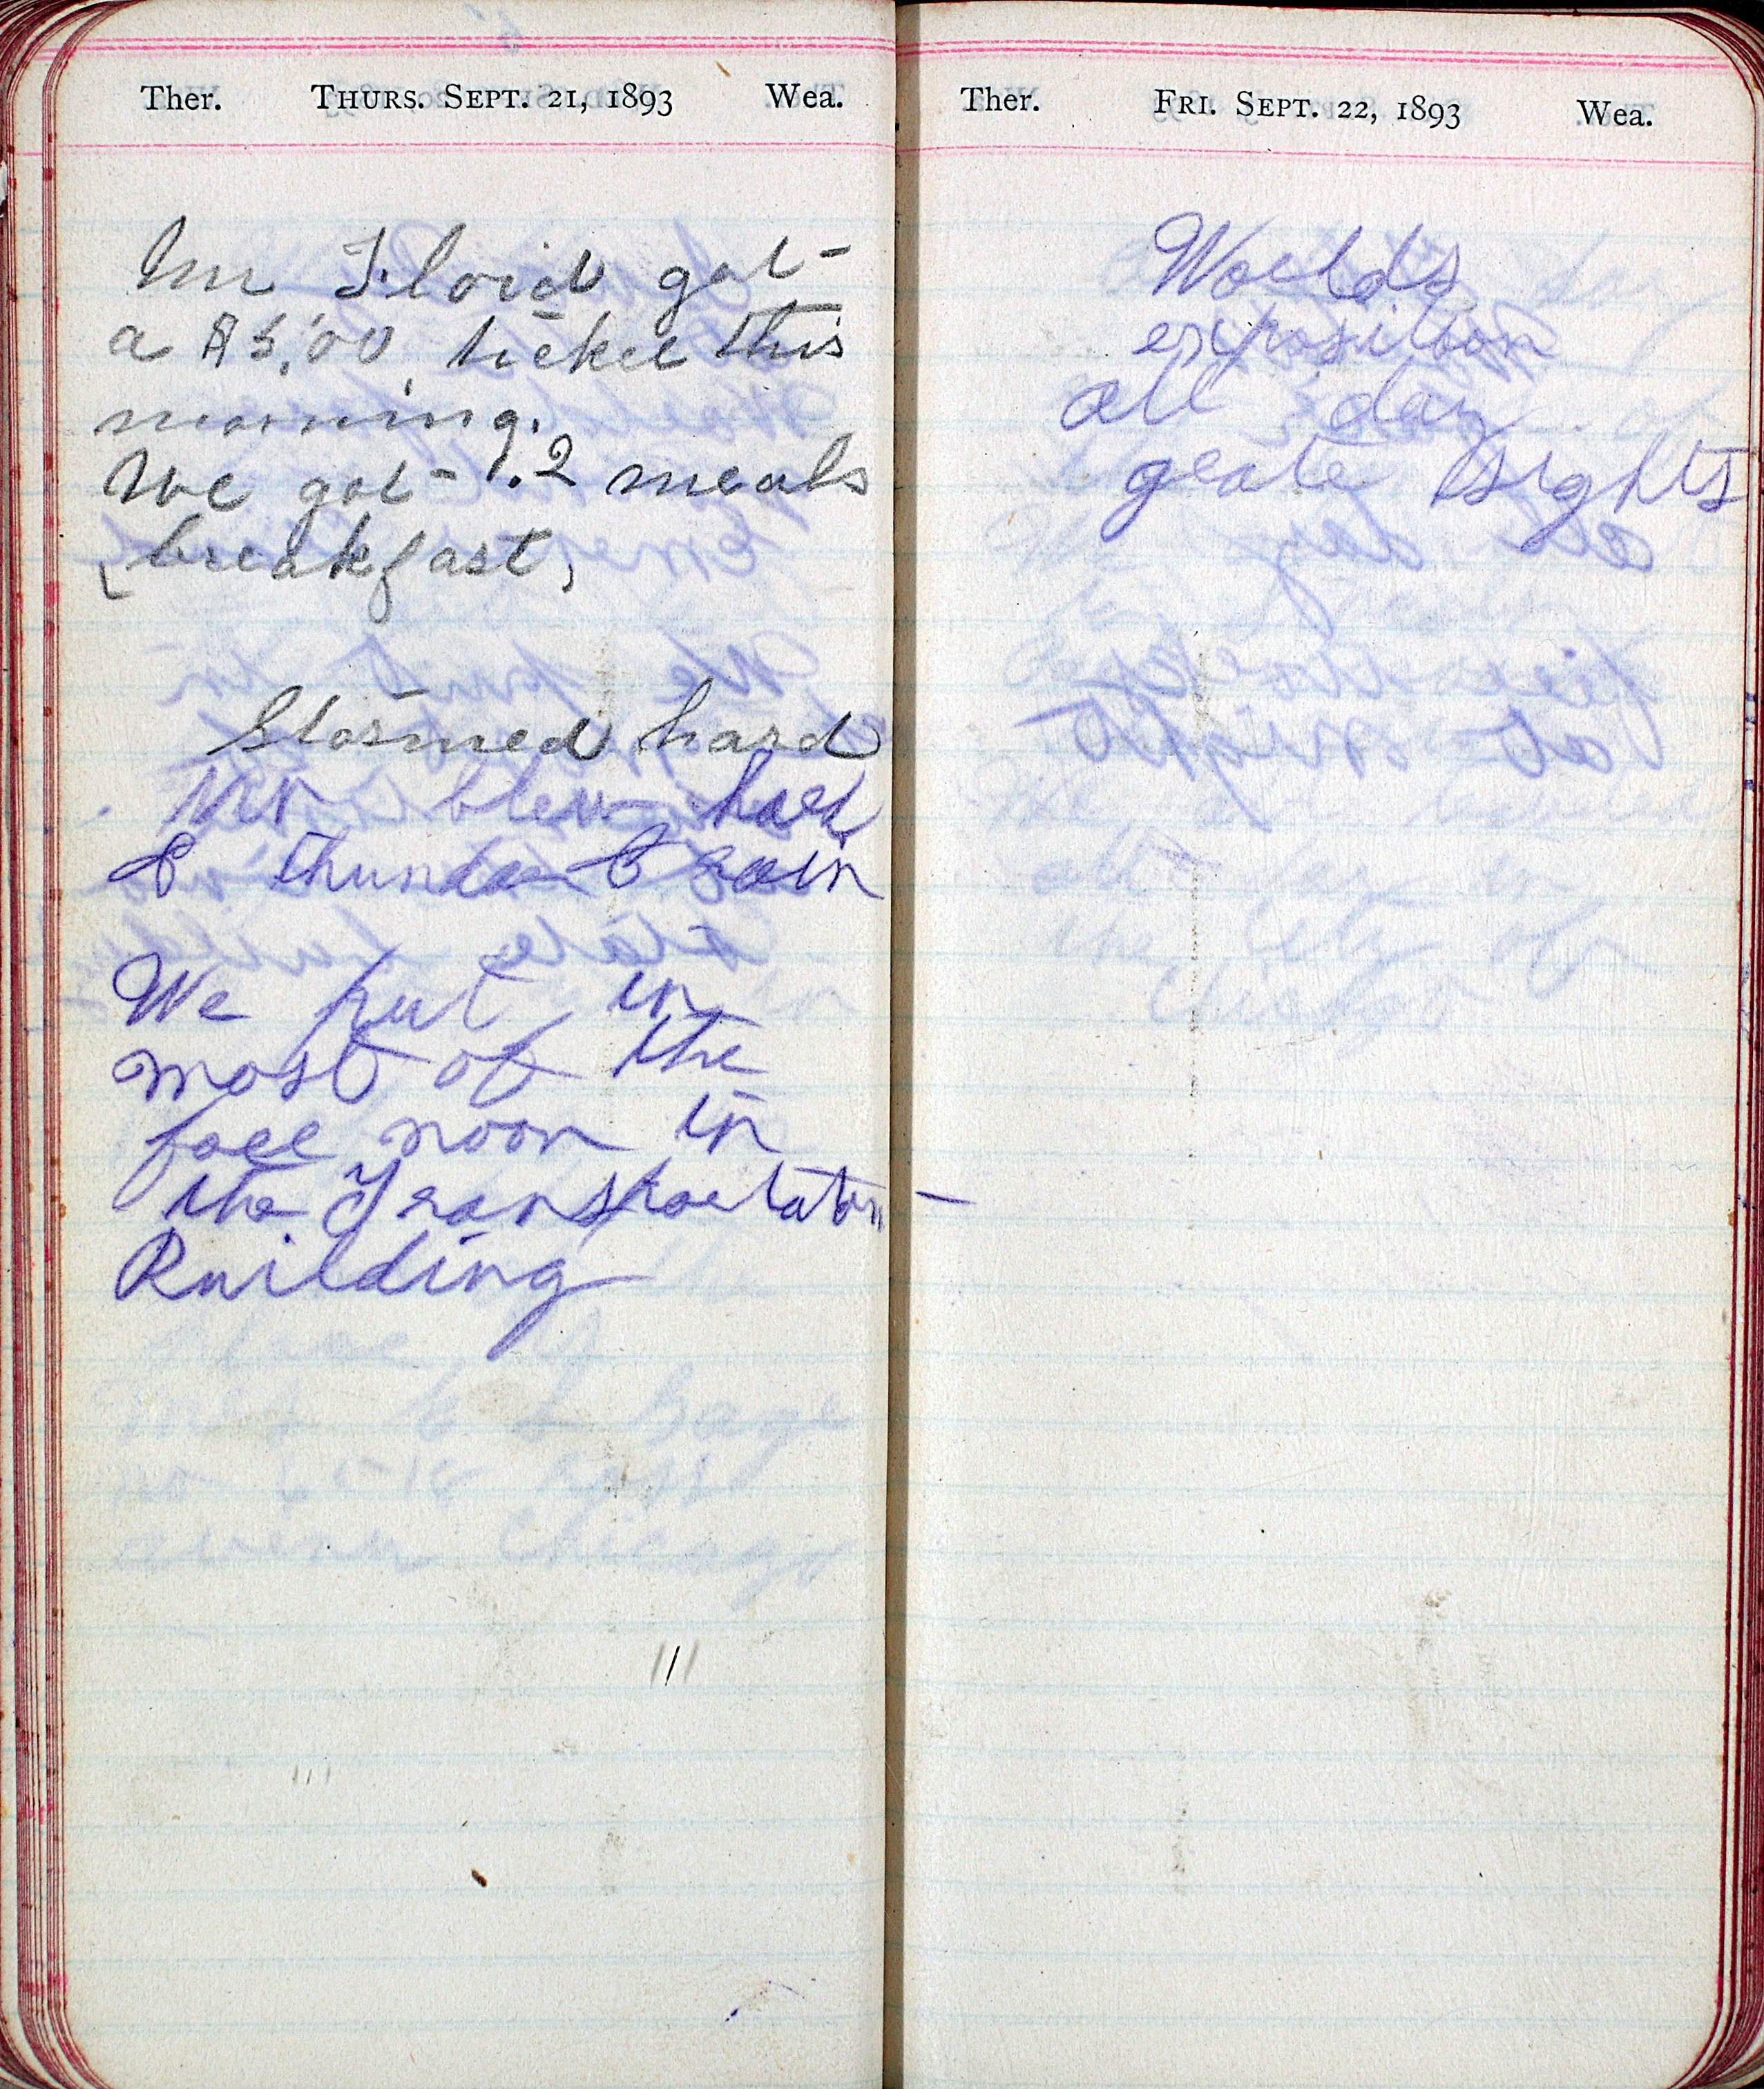 Ther. THURS. SEPT. 21, 1893 Wea.
Mr Floid got
a $5.00 ticket this
morning.
We got 12 meals
(breakfast)
Stormed hard
blew hard
& thunder & rain
We put in
most of the
fore noon in
the Transportation
Building
avenu Chicago
Ther. FRI. SEPT. 22, 1893 Wea.
Worlds
exposition
all day
grate sights